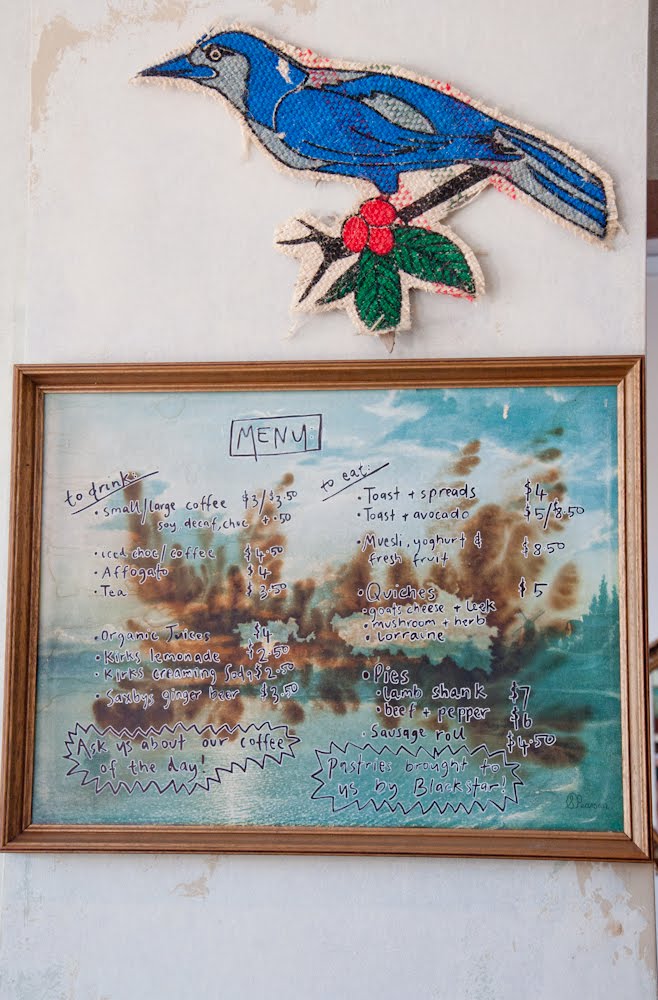 MENU:
to drink:
• small/large coffee $3/$3.50
soy, decaf, choc +.50
• iced choc/coffee $4.50
• Affogato $4
• Tea $3.50
• Organic Juices $4
• Kirks lemonade $2.50
• Kirks creaming Soda $2.50
• Saxbys ginger beer $3.50
Ask us about our coffee
of the day!
to eat:
• Toast + spreads $4
• Toast + avocado $5/8.50
• Muesli, yoghurt & $8.50
fresh fruit
• Quiches $5
• goats cheese + leek
• mushroom + herb
• lorraine
• Pies
• lamb shank $7
• beef + pepper $6
• Sausage roll $4.50
Pastries brought to
us by Blackstar!